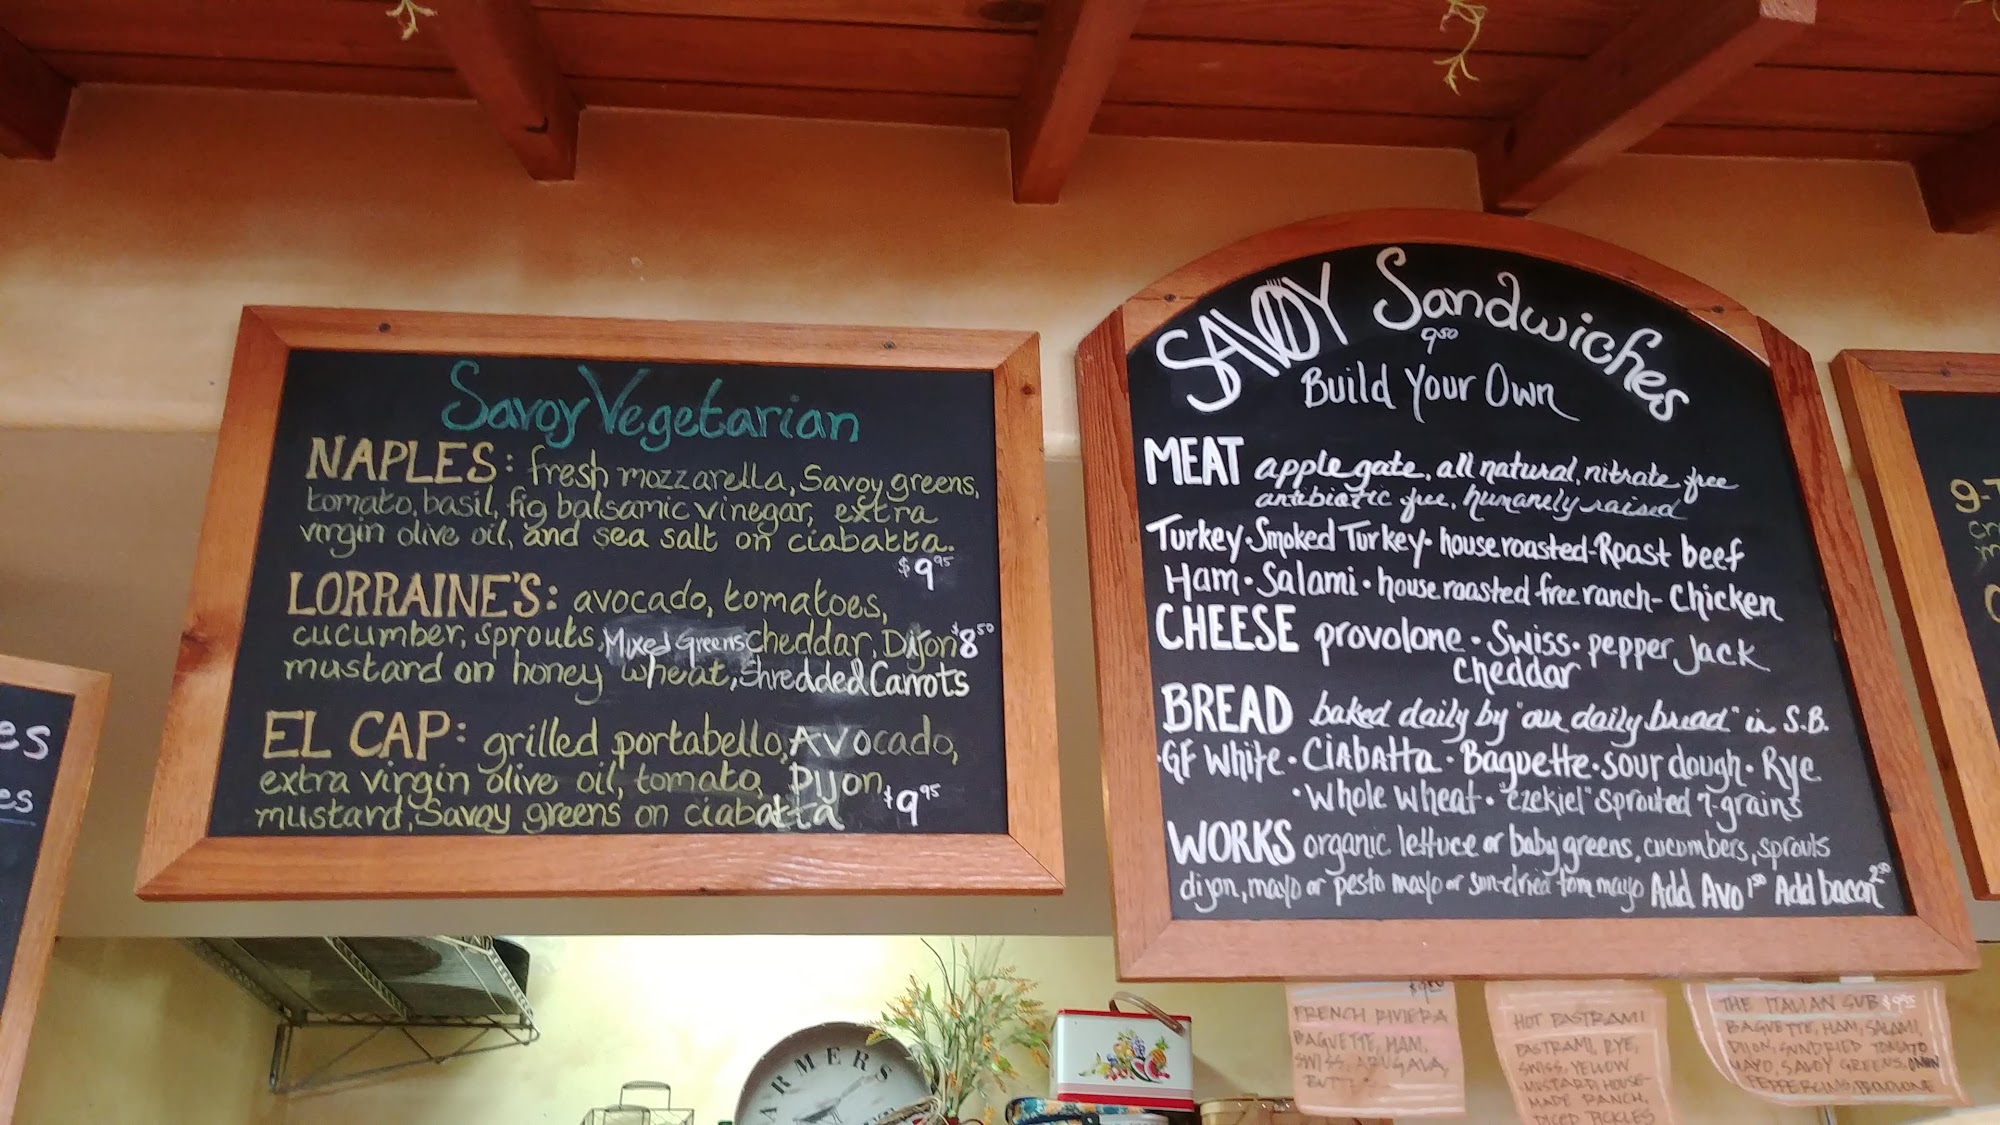 Savoy Vegetarian
NAPLES: fresh mozzarella, Savoy greens,
tomato, basil, fig balsamic vinegar, extra
virgin olive oil, and sea salt on ciabatta.
$9.95
LORRAINE'S: avocado, tomatoes,
cucumber, sprouts, Mixed Greens cheddar, Dijon $8.50
mustard on honey wheat, Shredded Carrots
EL CAP: grilled portabello, Avocado,
extra virgin olive oil, tomato, Dijon
mustard, Savoy greens on ciabatta $9.95
SAVOY Sandwiches
9.50
Build Your Own
MEAT applegate, all natural, nitrate free
antibiotic free, humanely raised
Turkey · Smoked Turkey · house roasted - Roast beef
Ham · Salami · house roasted free ranch - Chicken
CHEESE provolone · Swiss · pepper Jack
cheddar
BREAD baked daily by "our daily bread" in S.B.
· GF White · Ciabatta · Baguette · sour dough · Rye
· whole wheat · "ezekiel" sprouted 7-grains
WORKS organic lettuce or baby greens, cucumbers, sprouts
dijon, mayo or pesto mayo or sun-dried tom mayo Add Avo 1.50 Add bacon 2.50
es
es
9-
FARMERS
FRENCH RIVIERA
BAGUETTE, HAM,
SWISS, ARUGAVA,
HOT PASTRAMI
PASTRAMI, RYE,
SWISS, YELLOW
MUSTARD, HOUSE-
MADE RANCH,
DICED PICKLES
THE ITALIAN SUB $9.95
BAGUETTE, HAM, SALAMI,
DIJON, SUNDRIED TOMATO
MAYO, SAVOY GREENS, ONION
PEPPERCINIS, PROVOLONE